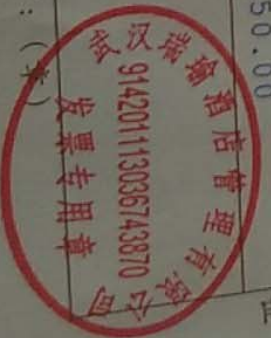 50.00
武汉瑞瑜酒店管理有限公司
91420111303674387０
发票专用章
:（章）